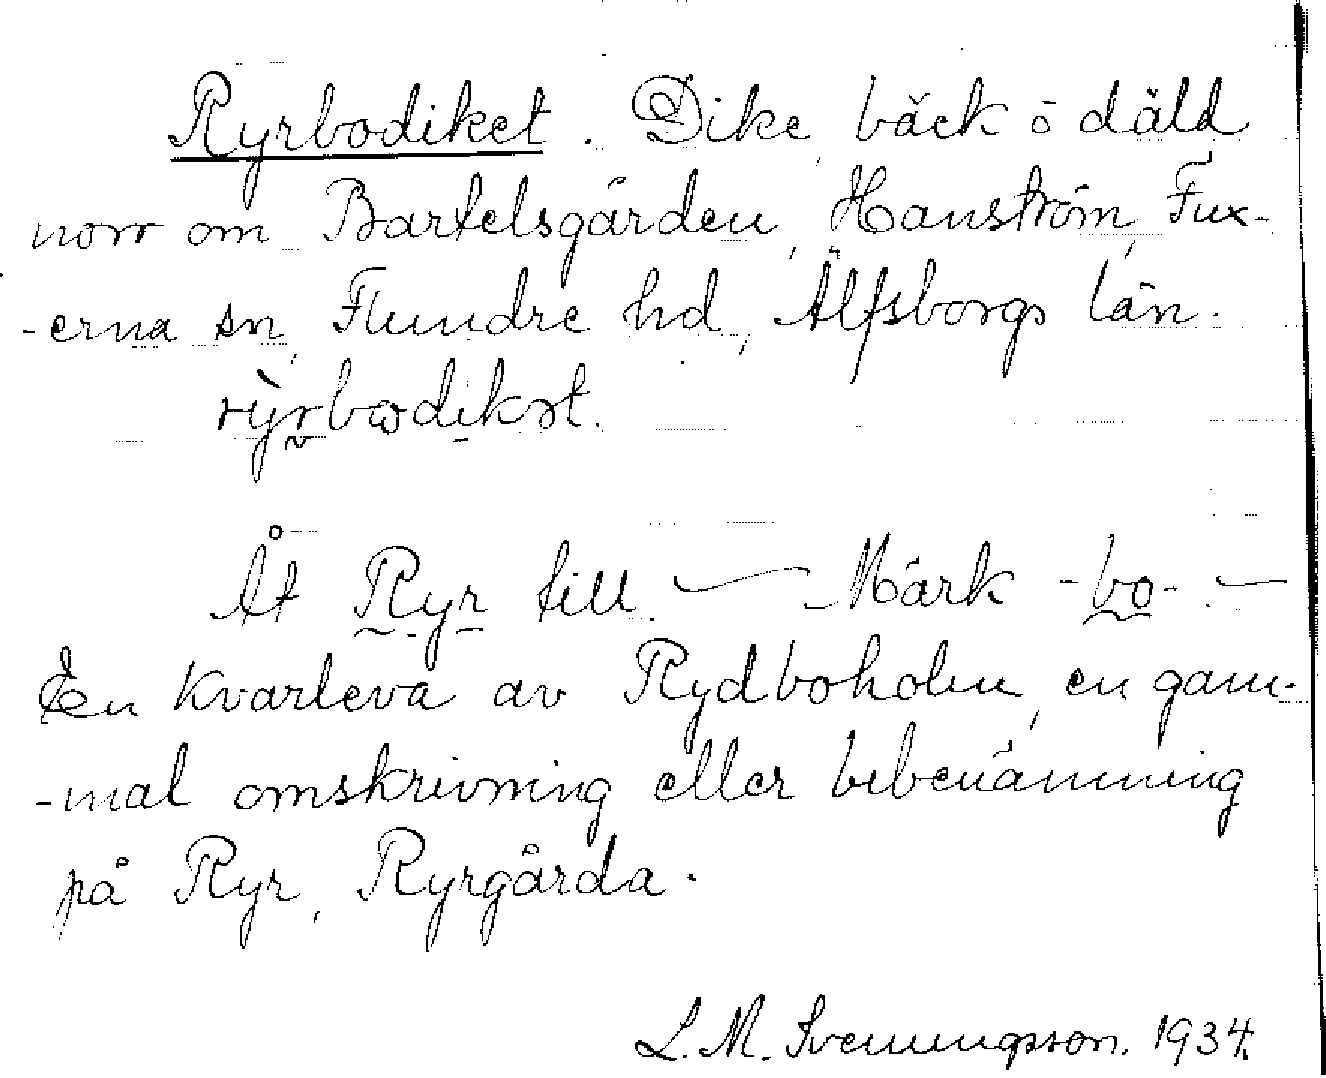 Ryrbodiket. Dike, bäck o däld
norr om Bartelsgården, Hanström, Fux-
-erna sn, Flundre hd, Älfsborgs län.
rỳrbωdikət.
Åt Ryr till. — Märk -bo-. —
En kvarleva av Rydboholm, en gam-
-mal omskrivning eller bibenämning
på Ryr, Ryrgårda.
L. M. Svenungsson. 1934.